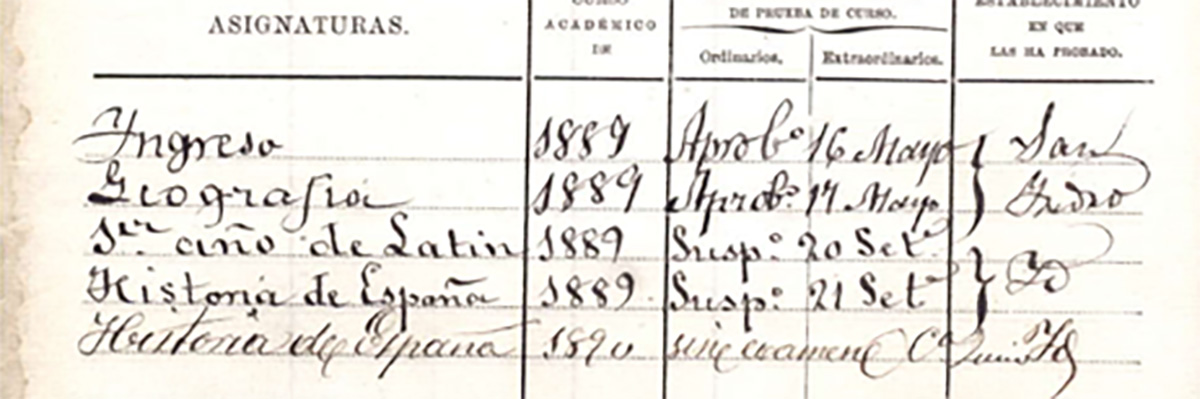 ASIGNATURAS.
CURSO
ACADÉMICO
DE
DE PRUEBA DE CURSO.
Ordinarios.
Extraordinarios.
ESTABLECIMIENTO
EN QUE
LAS HA PROBADO.
Ingreso 1889 Aprobº 16 Mayo San
Geografia 1889 Aprobº 17 Mayo Isidro
1er año de Latin 1889 Suspº 20 Setº
Historia de España 1889 Suspº 21 Setº Id
Historia de España 1890